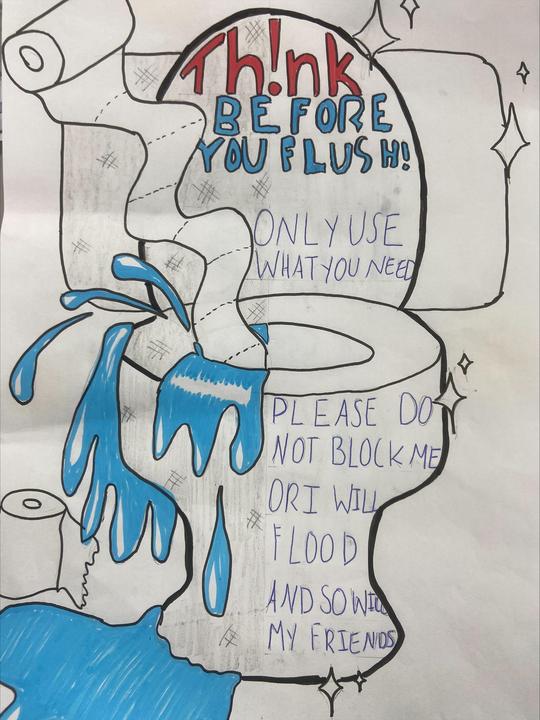 Th!nk
BEFORE
YOU FLUSH!
ONLY USE
WHAT YOU NEED
PLEASE DO
NOT BLOCK ME
OR I WILL
FLOOD
AND SO WILL
MY FRIENDS